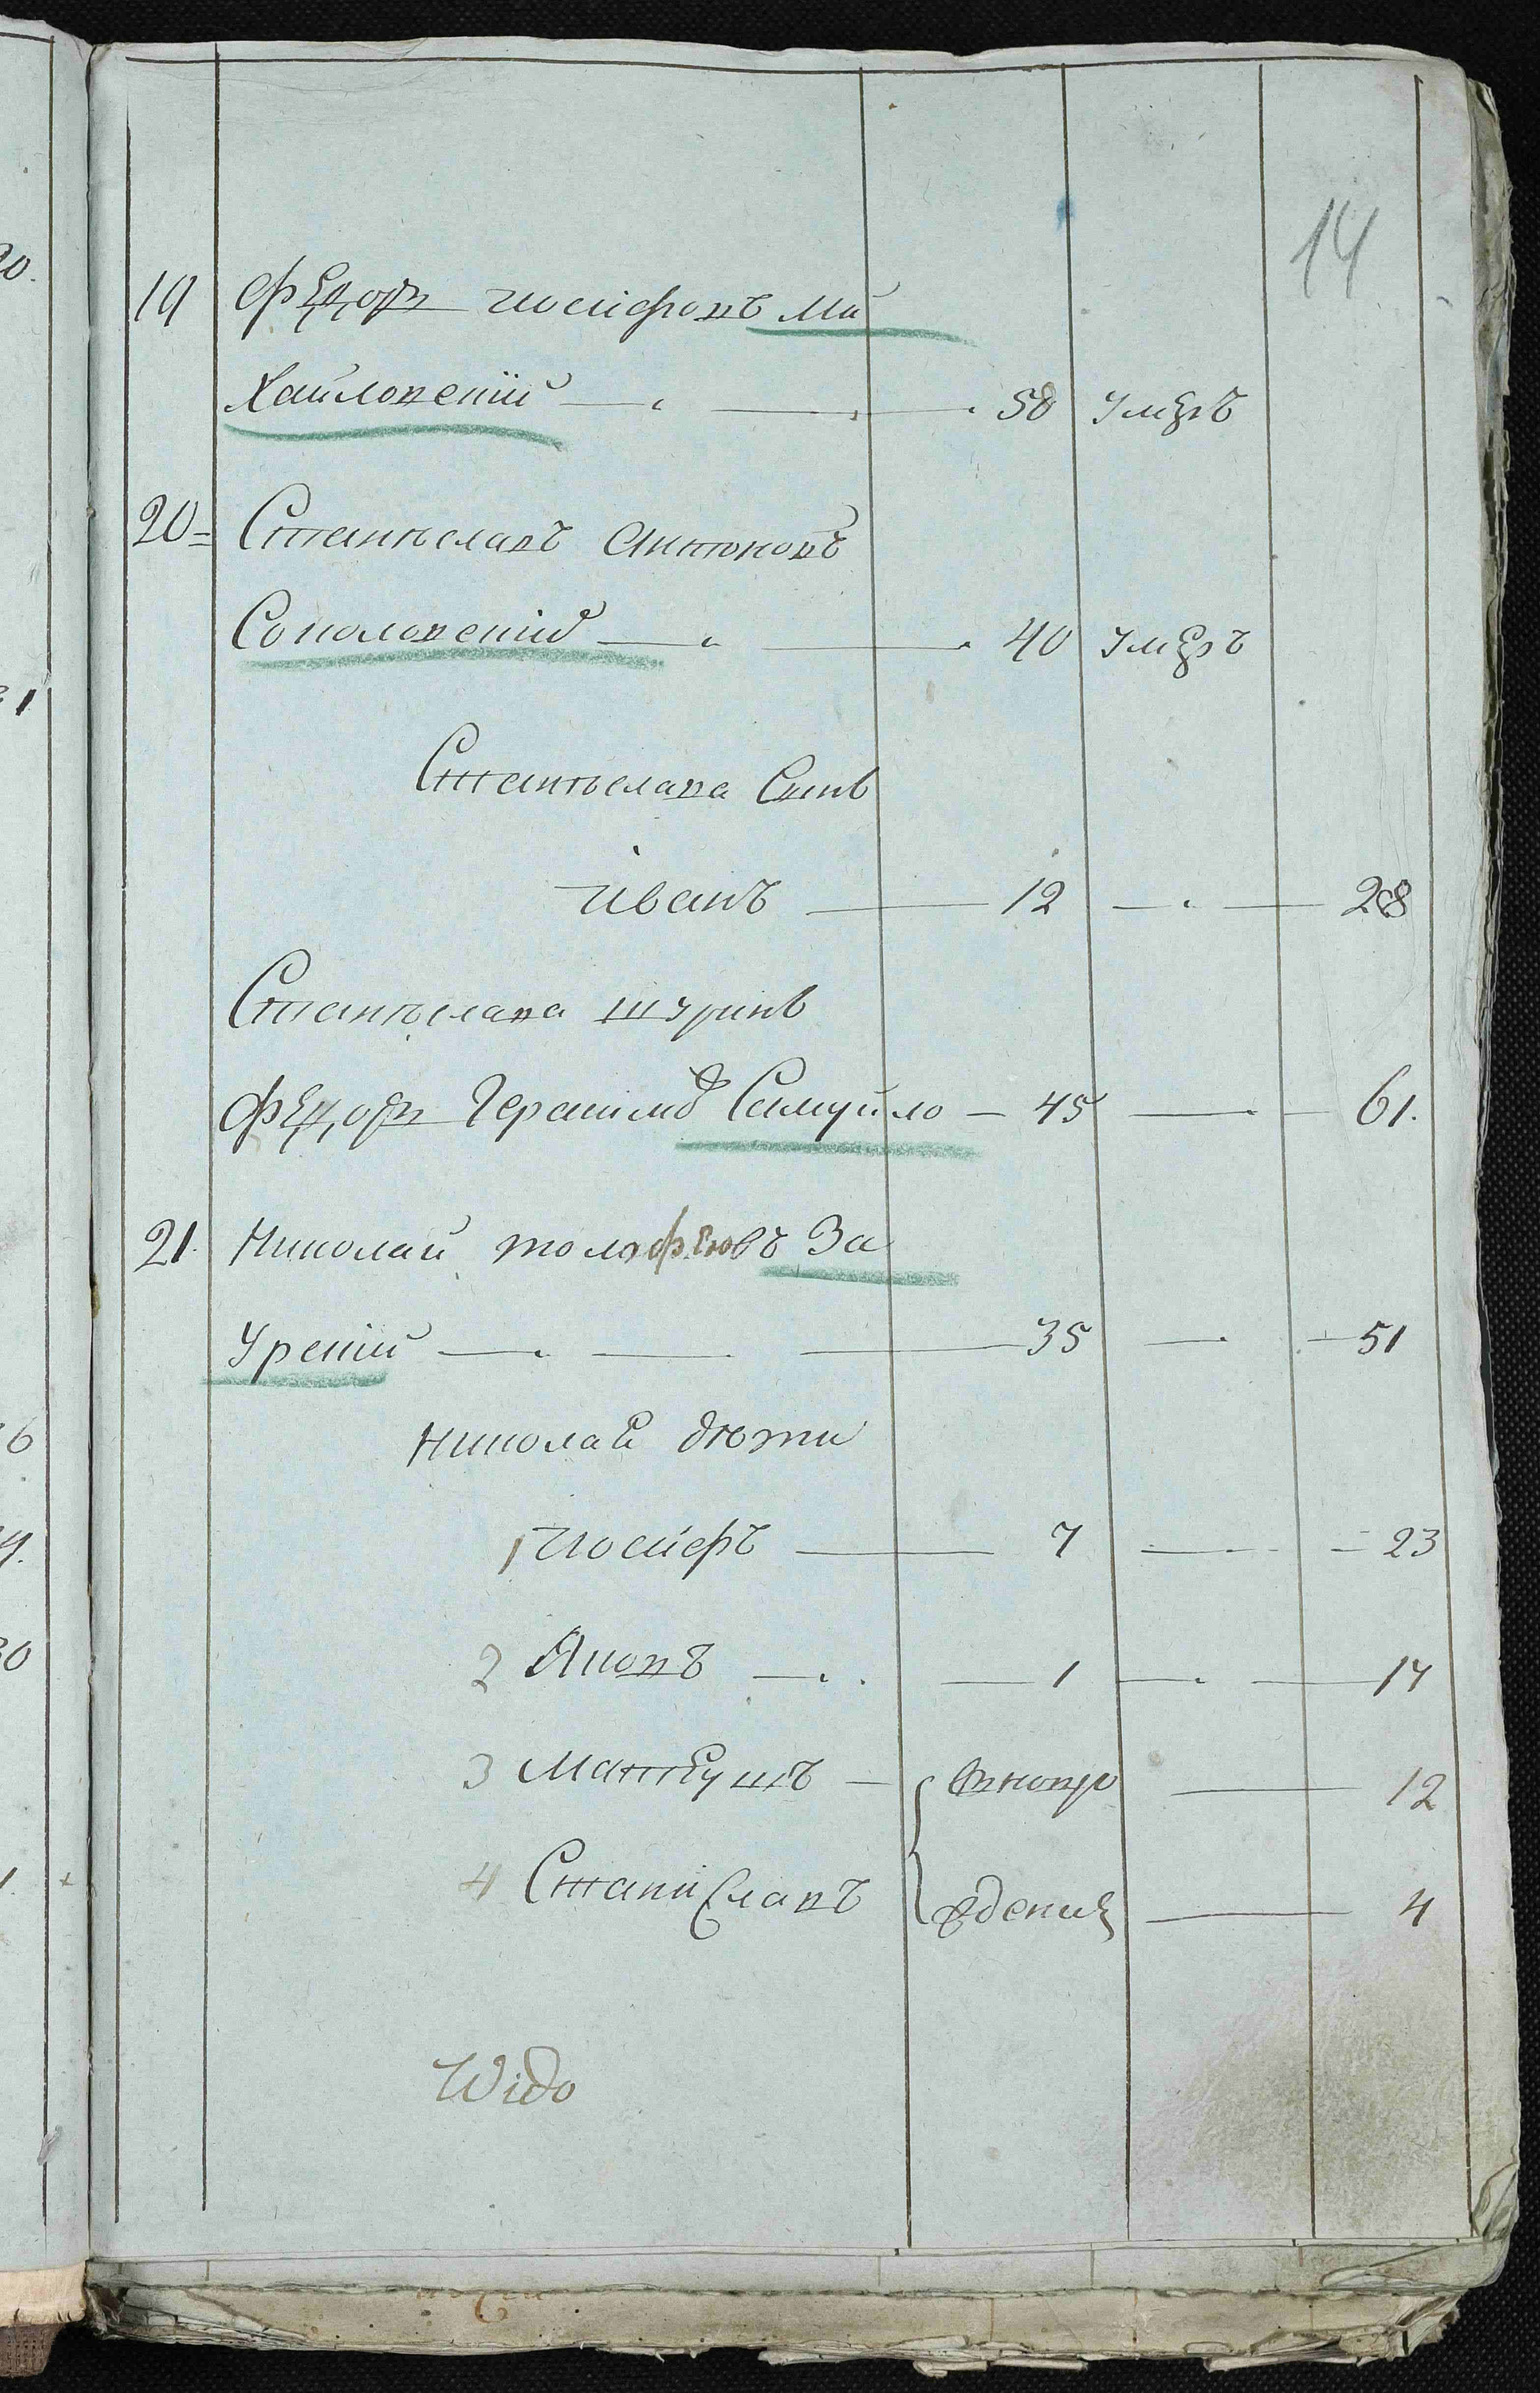 14
19 Федоръ Иосифовъ Ми
хайловскій 58 умеръ
20 Станѣславъ Антоновъ
Соколовскій 40 умеръ
Станѣслава Сынъ
Иванъ 12 28
Станѣслава шуринъ
Федоръ Герасимов Самуйло 45 61.
21. Николай За
урскій 35 51
Николая дѣти
1 Иосифъ 7 23
2 Яковъ 1 17
3 Матеушъ вновро 12
4 Станиславъ ждение 4
Wido